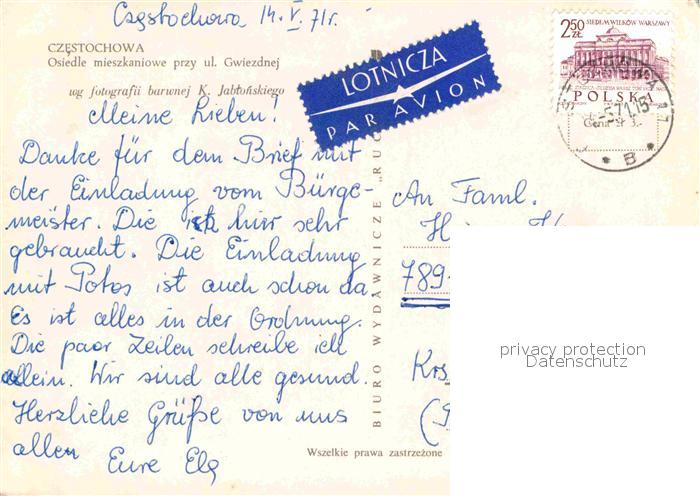 Częstochowa 14.V.71r.
CZĘSTOCHOWA
Osiedle mieszkaniowe przy ul. Gwiezdnej
wg fotografii barwnej K. Jabłońskiego
LOTNICZA
PAR AVION
2,50 ZŁ
SIEDEM WIEKÓW WARSZAWY
POLSKA
B
Meine Lieben!
Danke für dem Brief mit
der Einladung vom Bürge-
meister. Die ich hier sehr
gebraucht. Die Einladung
mit Fotos ist auch schon da
Es ist alles in der Ordnung.
Die paar Zeilen schreibe ich
allein. Wir sind alle gesund.
Herzliche Grüße von uns
allen Eure Ela
BIURO WYDAWNICZE „RUC
An Faml.
789
Krs
Wszelkie prawa zastrzeżone
privacy protection
Datenschutz